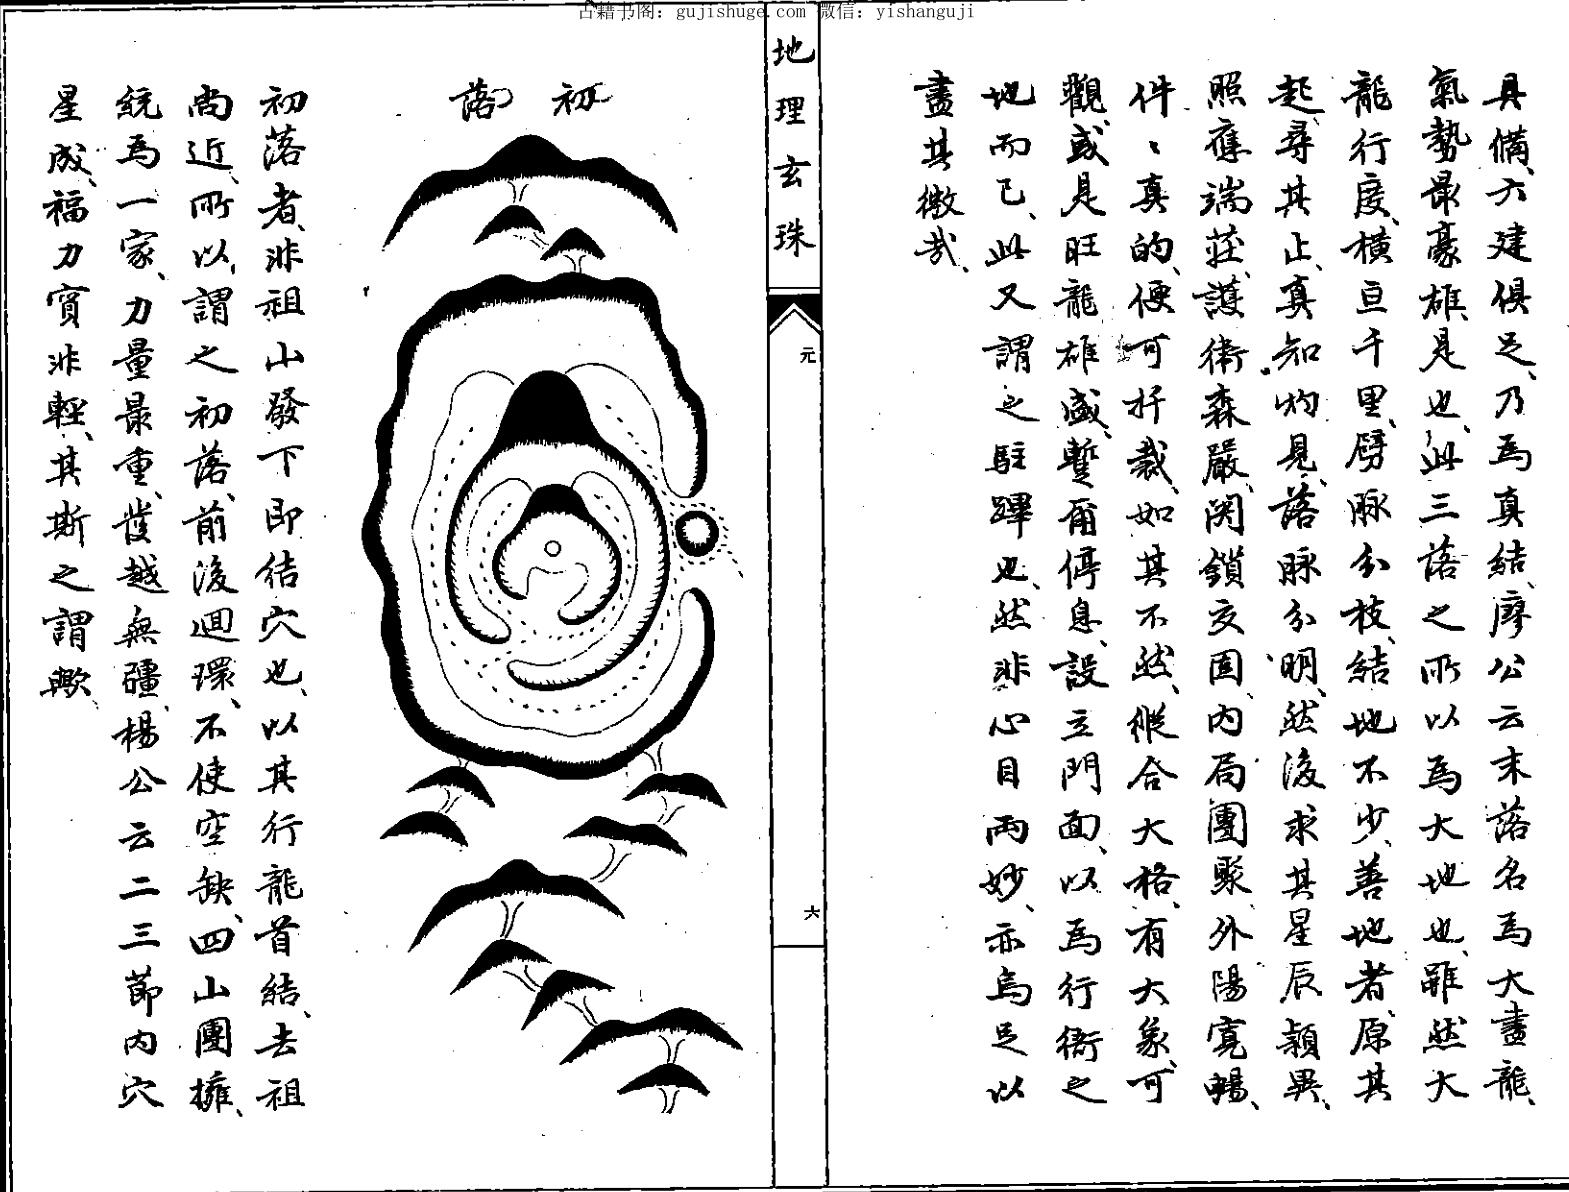 古籍书阁：gujishuge.com 微信：yishanguji
具備、六建俱足、乃為真結、廖公云末落名為大盡龍、
氣勢最豪雄、是也、此三落之所以為大地也、雖然大
龍行度、橫亘千里、劈脉分枝、結地不少、善地者、原其
起、尋其止、真知灼見、落脉分明、然後求其星辰穎異、
照應端莊、護衛森嚴、関鎖交固、内局團聚、外陽寬暢、
件〻真的、便可扦裁、如其不然、縱合大格、有大象、可
觀、或是旺龍雄盛、蹔爾停息、設立門面、以為行衙之
地而已、此又謂之駐蹕也、然非心目兩妙、亦烏足以
盡其微哉、
地理玄珠
元
六
初落
初落者、非祖山發下即結穴也、以其行龍首結、去祖
尚近、所以謂之初落、前後迴環、不使空缺、四山團擁、
統為一家、力量最重、發越無疆、楊公云二三節内穴
星成、福力實非輕、其斯之謂歟、